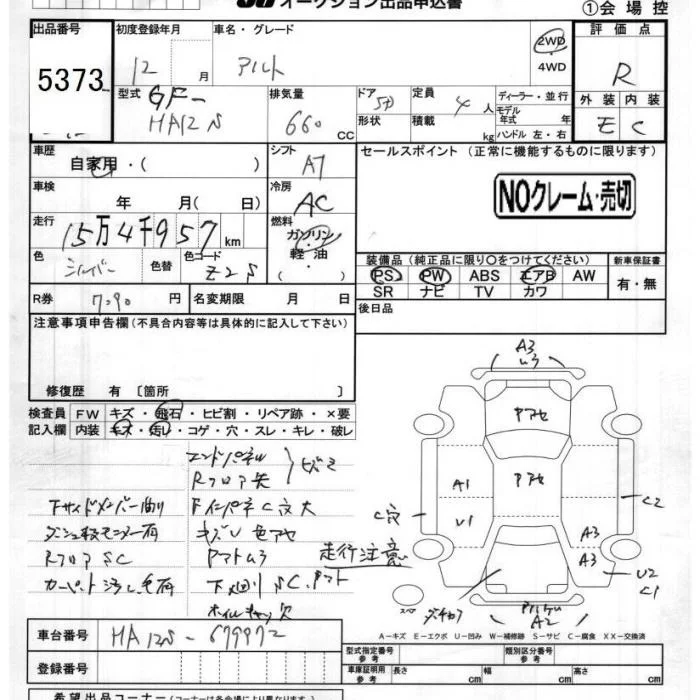 オークション出品申込書
①会場控
出品番号
5373
初度登録年月
12 月
車名・グレード
アルト
2WD
・
4WD
評価点
R
型式
GF-
HA12S
排気量
660 CC
ドア
5D
形状
定員
4 人
積載
kg
ディーラー・並行
モデル年式 年
ハンドル 左・右
外装 内装
E C
車歴
自家用・( )
シフト
AT
セールスポイント (正常に機能するものに限ります)
車検
年 月( 日)
冷房
AC
NOクレーム・売切
走行
15万4千957 km
燃料
ガソリン
軽油
・( )
色
シルバー
色替
色コード
Z2S
装備品 (純正品に限り○をつけてください)
PS PW ABS エアB AW
SR ナビ TV カワ
新車保証書
有・無
R券
7290 円
名変期限 月 日
後日品
注意事項申告欄 (不具合内容等は具体的に記入して下さい)
修復歴 有 〔箇所 〕
検査員
記入欄
FW キズ・飛石・ヒビ割・リペア跡・×要
内装 キズ・汚レ・コゲ・穴・スレ・キレ・破レ
エンドパネル
Rフロア
下サイドメンバー曲り
Rフロア SC
カーペット汚し
キズU 色アセ
走行注意
ホイルキャップ欠
A3
アセ
アセ
A1
U1
C穴
C2
A3
A3
U2
C1
A2
A-キズ E-エクボ U-凹み W-補修跡 S-サビ C-腐食 XX-交換済
車台番号
HA12S-679972
型式指定番号
参考
類別区分番号
参考
登録番号
車庫証明用
参考
長さ cm
幅 cm
高さ cm
希望出品コーナー (コーナーは各会場により異なります)